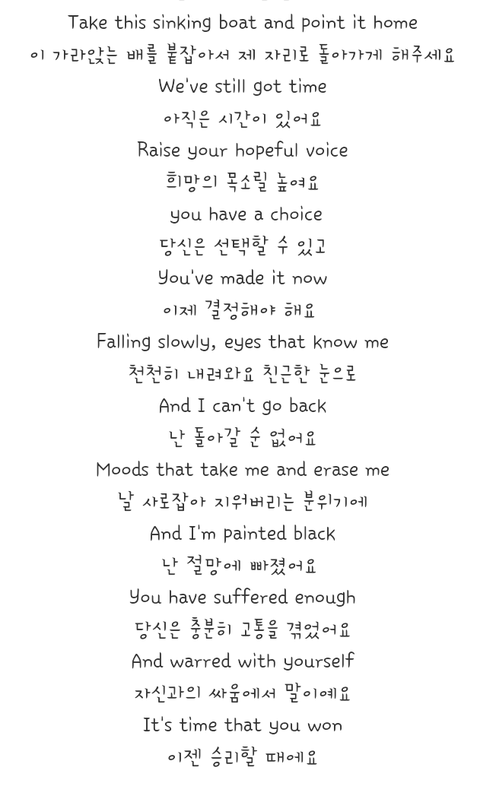 Take this sinking boat and point it home
이 가라앉는 배를 붙잡아서 제 자리로 돌아가게 해주세요
We've still got time
아직은 시간이 있어요
Raise your hopeful voice
희망의 목소릴 높여요
you have a choice
당신은 선택할 수 있고
You've made it now
이제 결정해야 해요
Falling slowly, eyes that know me
천천히 내려와요 친근한 눈으로
And I can't go back
난 돌아갈 순 없어요
Moods that take me and erase me
날 사로잡아 지워버리는 분위기에
And I'm painted black
난 절망에 빠졌어요
You have suffered enough
당신은 충분히 고통을 겪었어요
And warred with yourself
자신과의 싸움에서 말이예요
It's time that you won
이젠 승리할 때에요